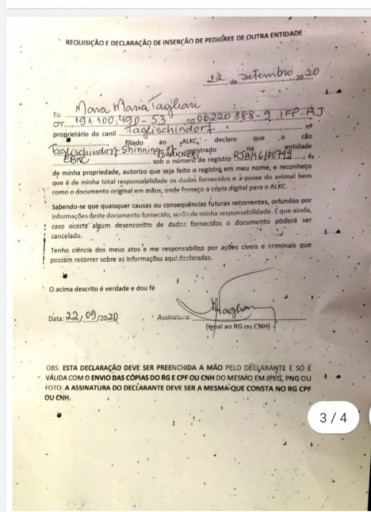 REQUISIÇÃO E DECLARAÇÃO DE INSERÇÃO DE PEDIGREE DE OUTRA ENTIDADE
22 de Setembro 2020
Eu Mara Maria Taglian
CPF 191.100.490-53 RG 00220388-9 IFP-RJ
proprietário do canil Taglischindorf nº
filiado ao ALKC, declaro que o cão
Taglischindorf Shinning registrado na entidade
CBKC sob o número de registro
de minha propriedade, autorizo que seja feito o registro em meu nome, e reconheço
que é de minha total responsabilidade os dados fornecidos e a posse do animal bem
como o documento original em mãos, onde forneço a cópia digital para o ALKC.
Sabendo-se que quaisquer causas ou consequências futuras recorrentes, ortundos por
informações deste documento fornecido, serão de minha responsabilidade. E que ainda,
caso ocorra algum desencontro de dados fornecidos o documento poderá ser
cancelado.
Tenho ciência dos meus atos e me responsabilizo por ações cíveis e criminais que
possam recorrer sobre as informações aqui declaradas.
O acima descrito é verdade e dou fé
Data: 22/09/2020 Assinatura:
(Igual ao RG ou CNH)
OBS: ESTA DECLARAÇÃO DEVE SER PREENCHIDA A MÃO PELO DECLARANTE E SÓ É
VÁLIDA COM O ENVIO DAS CÓPIAS DO RG E CPF OU CNH DO MESMO EM JPEG, PNG OU
FOTO. A ASSINATURA DO DECLARANTE DEVE SER A MESMA QUE CONSTA NO RG CPF
OU CNH.
3 / 4